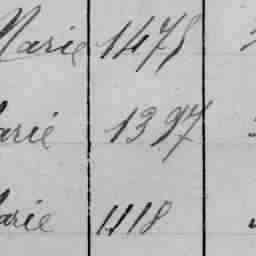 Marie 1475
arie 1397
arie 1118